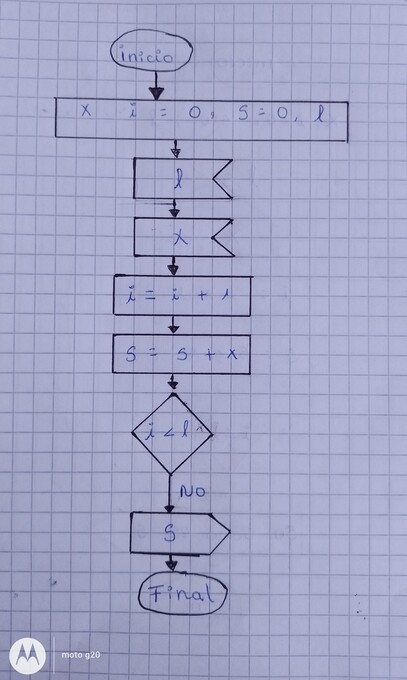 inicio
x i = 0, S = 0, l
l
x
i = i + 1
S = S + x
i < l
NO
S
Final
moto g20